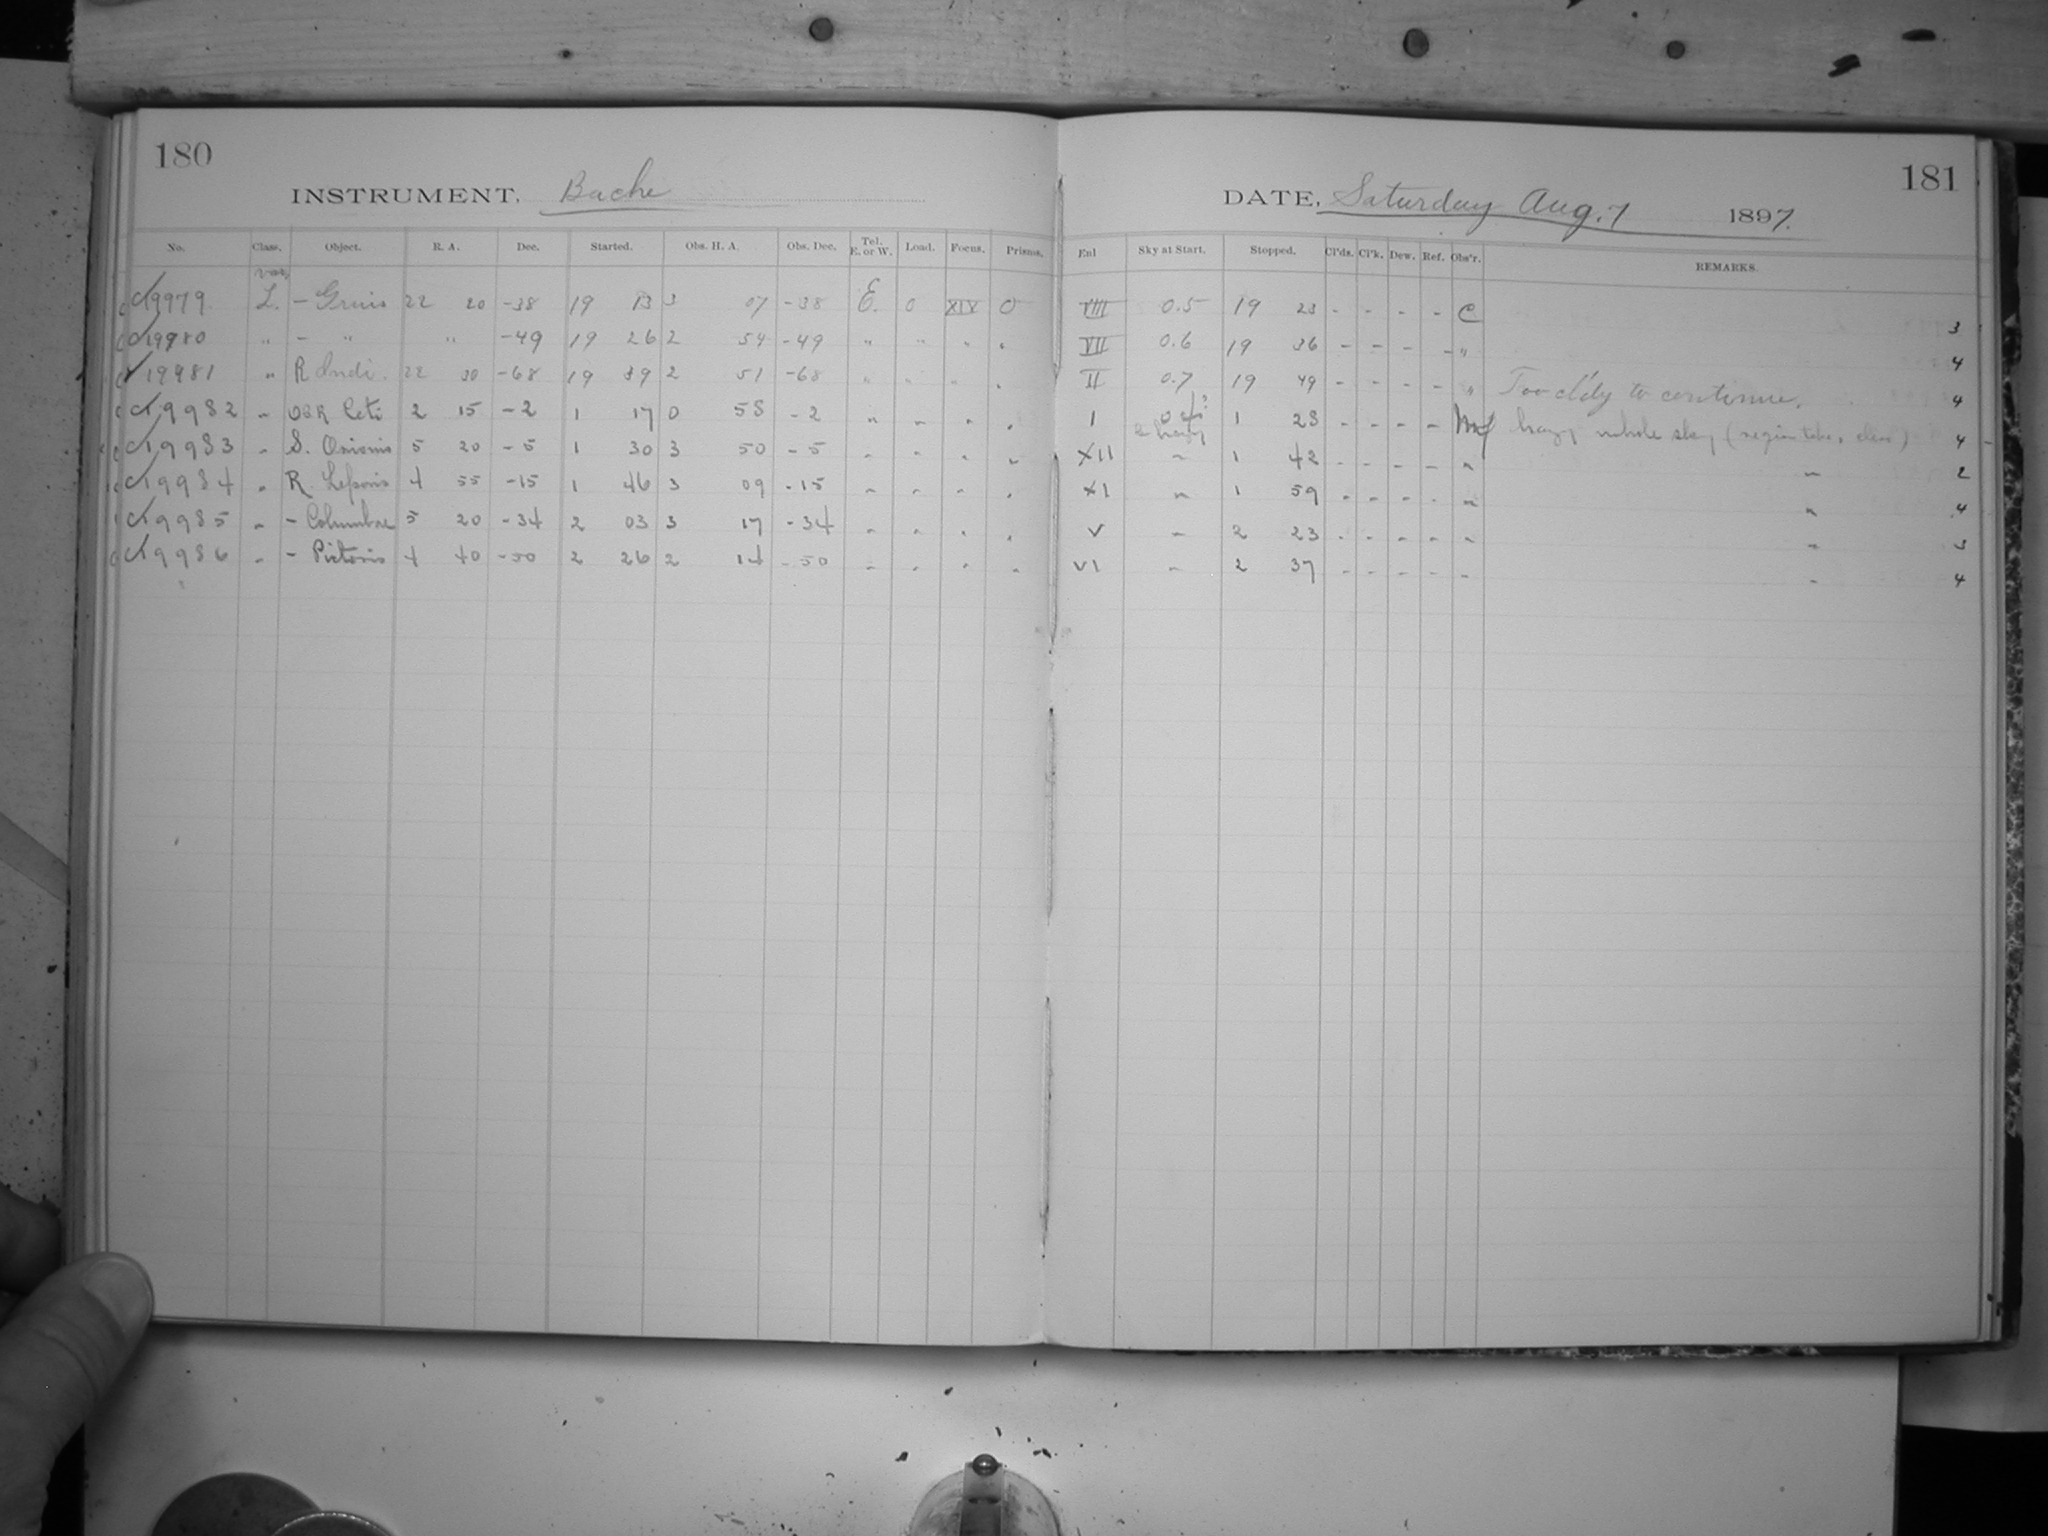 180
INSTRUMENT. Bache
No. Class. Object. R. A. Dec. Started. Obs. H. A. Obs. Dec. Tel. E. or W. Load. Focus. Prisms.
var.
19979 L. - Gruis 22 20 -38 19 13 3 07 -38 E. 0 XIV 0
19980 " - " " -49 19 26 2 54 -49 " " " "
19981 " R Indi. 22 30 -68 19 39 2 51 -68 " " " "
19982 " o&R Ceti 2 15 -2 1 17 0 58 -2 " " " "
19983 " S. Orionis 5 20 -5 1 30 3 50 -5 " " " "
19984 " R. Leporis 4 55 -15 1 46 3 09 -15 " " " "
19985 " - Columbae 5 20 -34 2 03 3 17 -34 " " " "
19986 " - Pictoris 4 40 -50 2 26 2 14 -50 " " " "
181
DATE, Saturday Aug. 7 1897.
Enl Sky at Start. Stopped. Cl'ds. Cl'k. Dew. Ref. Obs'r. REMARKS.
VIII 0.5 19 23 - - - - C 3
VII 0.6 19 36 - - - - " 4
II 0.7 19 49 - - - - " Too cl'dy to continue. 4
I hazy 1 28 - - - - hazy whole sky (region clear) 4
XII " 1 42 - - - - " " 2
XI " 1 59 - - - - " " 4
V " 2 23 - - - - " " 3
VI " 2 37 - - - - " " 4